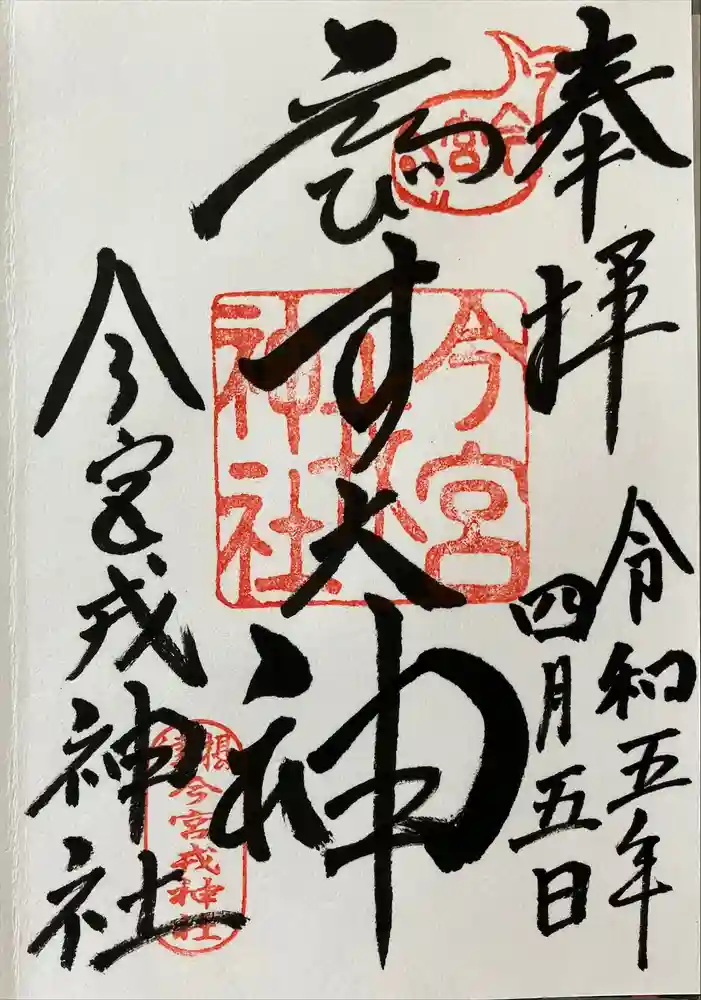 奉拝
令和五年
四月五日
今宮
ゑびす大神
今宮
戎
神社
今宮戎神社
今宮戎神社